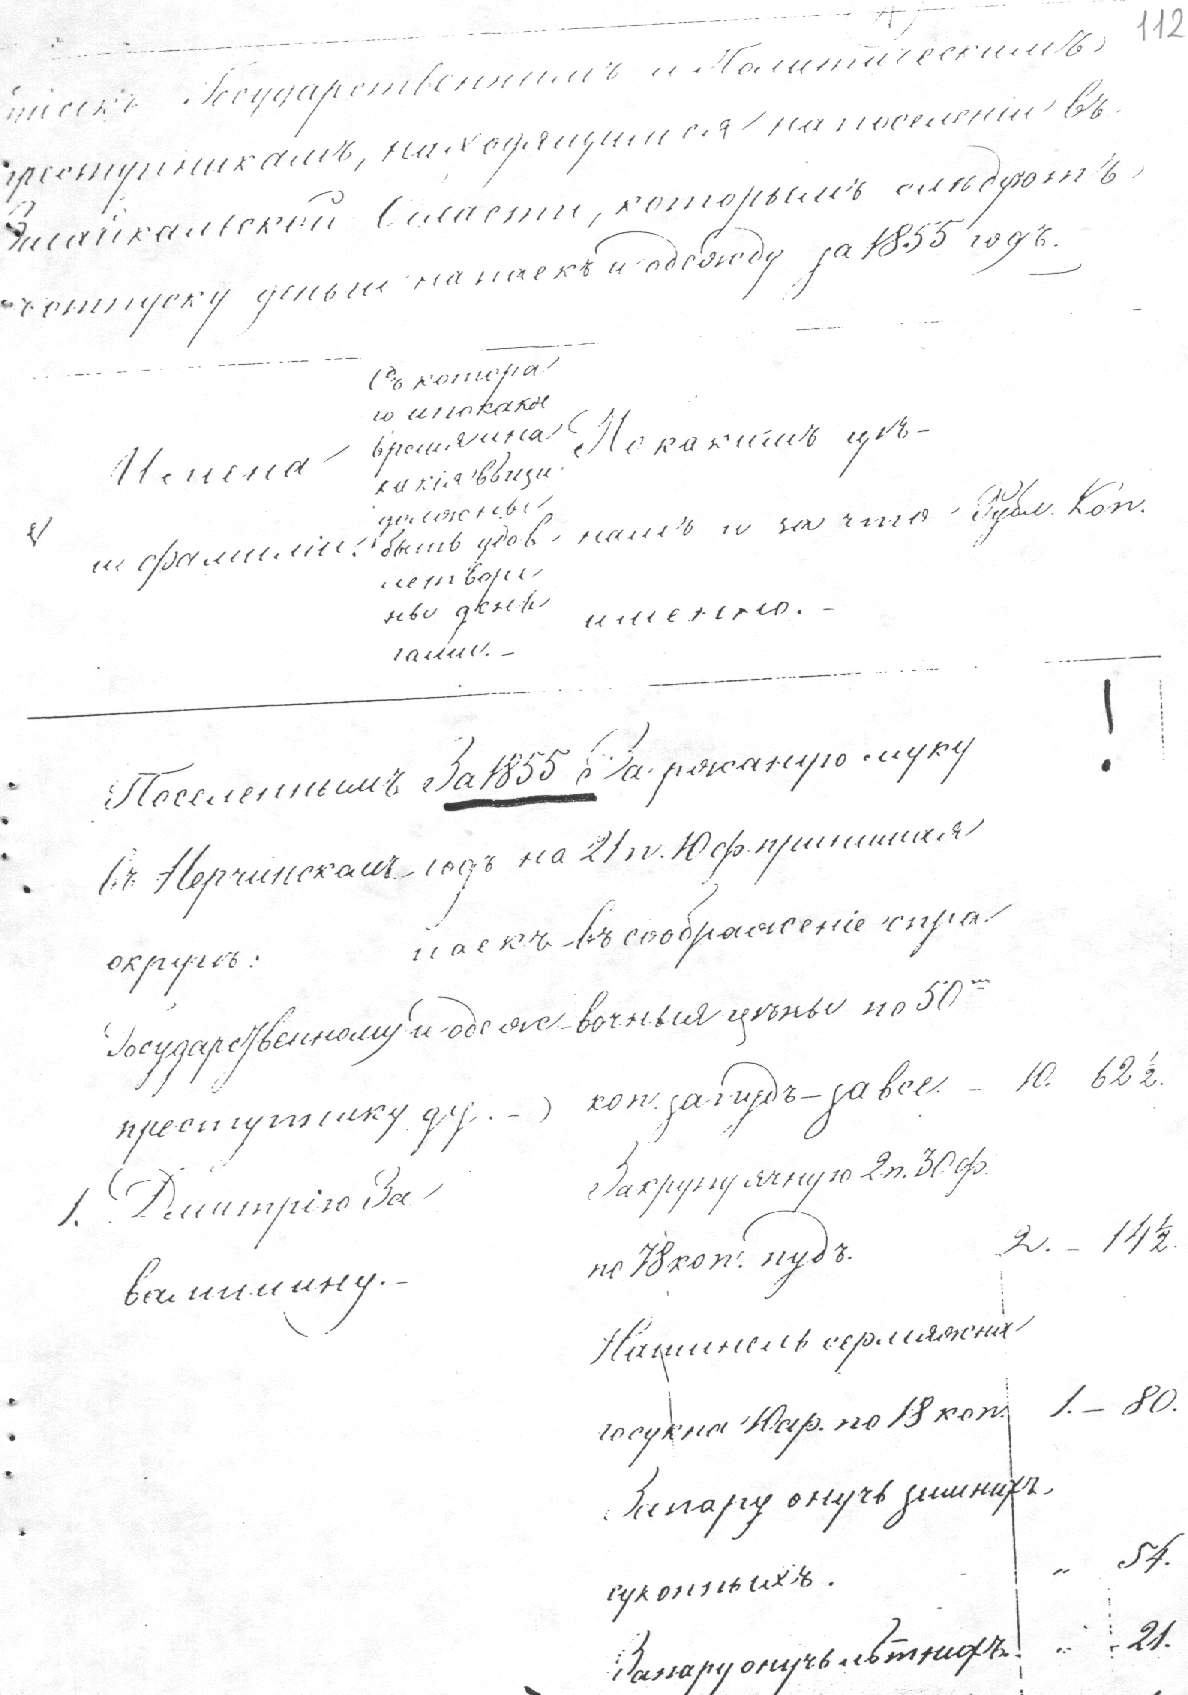 112
списокъ Государственнымъ и Политическимъ
преступникамъ, находящимся на поселеніи въ
Забайкальской Области, которымъ слѣдуютъ
къ отпуску деньги на паекъ и одежду за 1855 годъ.
Имена
и фамиліи.
Съ котора
го и по какое
время и на
какія вещи
должны
быть удов
летворе
ны день
гами. –
По какимъ цѣ–
намъ и за что
именно. –
Рубл. Коп.
Поселеннымъ
въ Нерчинскомъ
округѣ:
Государственному
преступнику
1. Дмитрію За
валишину. –
За 1855
годъ на
паекъ
и одеж
ду. –
За ржаную муку
21 п. 10 ф. принимая
въ соображеніе спра
вочныя цѣны по 50
коп. за пудъ – за все. – 10. 62 ½.
За крупу ячную 2 п. 30 ф.
по 78 коп. пудъ. 2. – 14 ½.
На шинель сермяжна
го сукна 10 ар. по 18 коп. 1. – 80.
За пару онучь зимнихъ
суконныхъ. „ 54.
За пару онучь лѣтнихъ. „ 21.